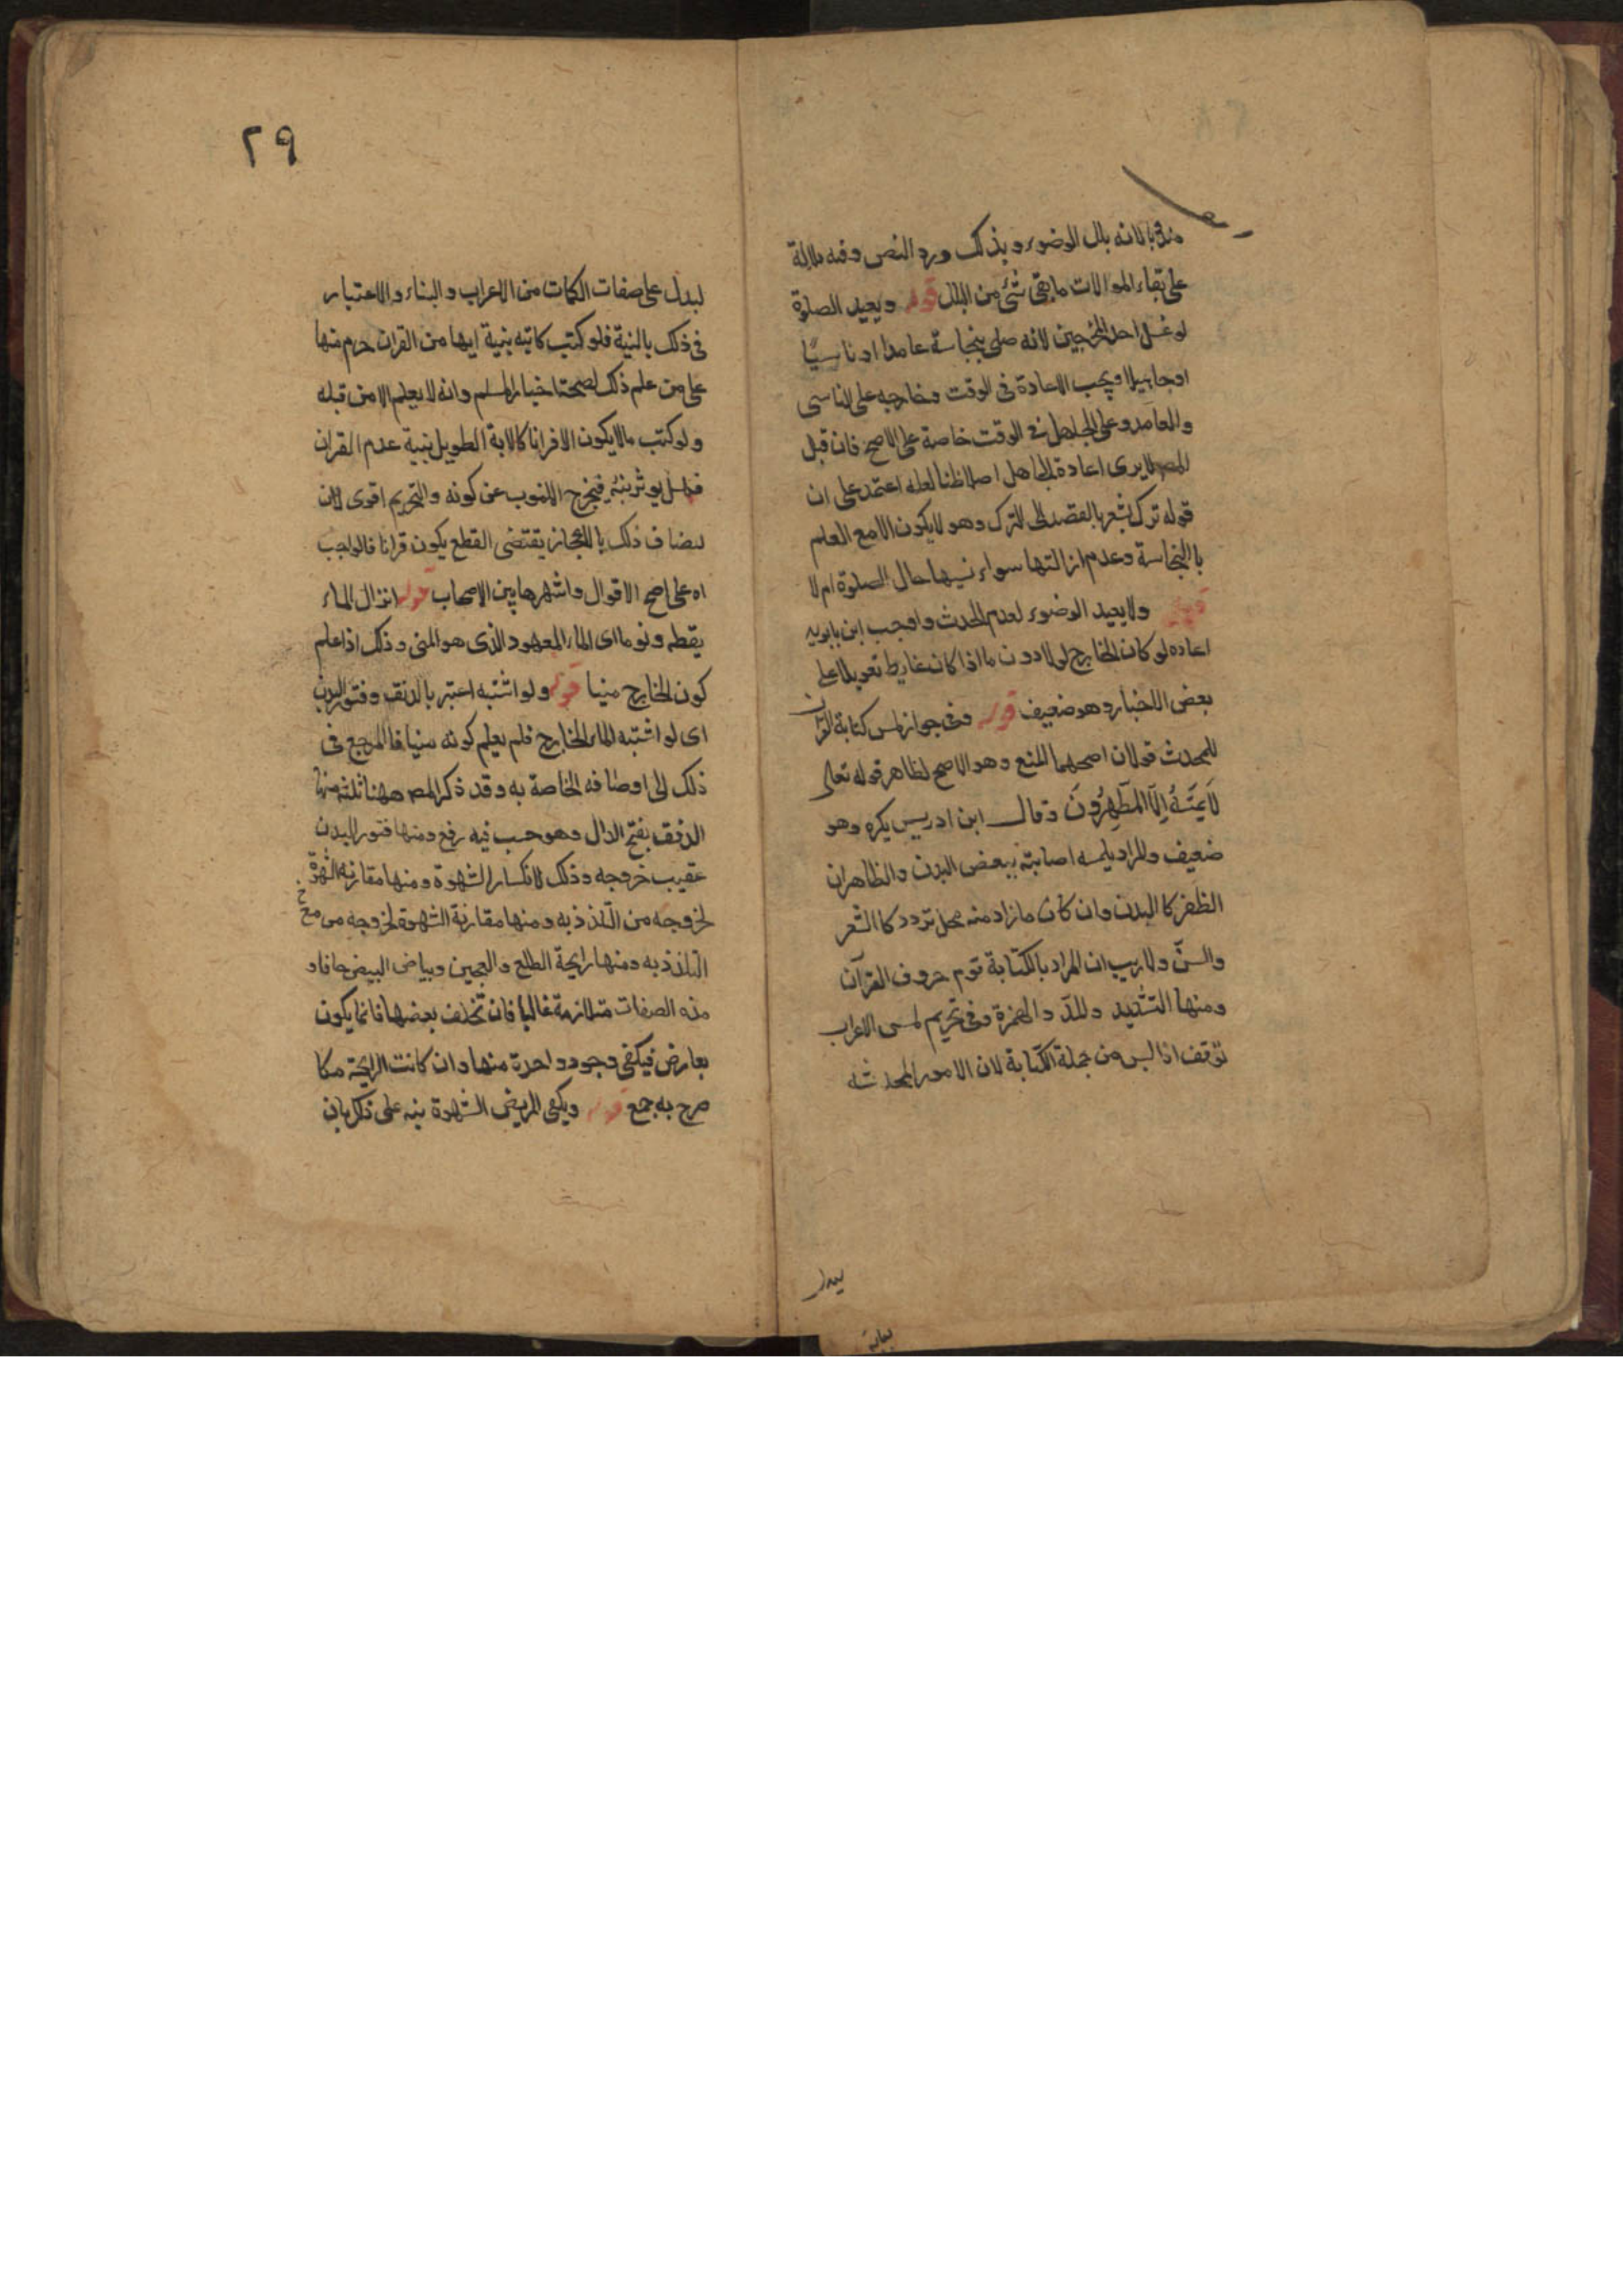 مندوبا لانه بلل الوضوء وبذلك ورد النص وفيه دلالة
على بقاء الموالات ما بقى شئ من البلل قوله ويعيد الصلوة
لو غسل احد المخرجين لانه صلى بنجاسة عامدا او ناسيًا
او جاهلا ويجب الاعادة فى الوقت وخارجه على الناسى
والعامد وعلى الجاهل فى الوقت خاصة على الاصح فان قيل
المصـ لا يرى اعادة الجاهل اصلا ظنا لعله اعتمد على ان
قوله ترك يشعر بالقصد الى الترك وهو لا يكون الا مع العلم
باالنجاسة وعدم ازالتها سواء نسيها حال الصلوة ام لا
قوله ولا يعيد الوضوء لعدم الحدث واوجب ابن بابويه
اعاده لو كان الخارج بولا دون ما اذا كان غايط تعويلا على
بعض الاخبار وهو ضعيف قوله وفى جواز لمس كتابة القران
للمحدث قولان اصحهما المنع وهو الاصح لظاهر قوله تعالى
لَا يَمَسُّهُ اِلَّا المُطَهَّرُونَ وقال ابن ادريس يكره وهو
ضعيف والمراد بلمسه اصابته ببعض البدن والظاهر ان
الظفر كا البدن وان كان ما زاد منه محل تردد كا الشعر
والسنّ ولا ريب ان المراد بالكتابة حروف القرآن
ومنها التشديد والمدّ والهمزة وفى تحريم لمس الاعراب
توقف اذا ليس من جملة الكتابة لان الامور المحدثه
ليدل
٢٩
ليدل على صفات الكلمات من الاعراب والبناء والاعتبار
فى ذلك بالنية فلو كتب كاتبه بنية ايها من القران حرم منها
على من علم ذلك لصحة اخبار المسلم وانه لا يعلم الا من قبله
ولو كتب ما لا يكون الا قرانا كالاية الطويل بنية عدم القران
فهل يوثر نيته فيخرج المكتوب عن كونه والتحريم اقوى لان
ذلك بالاعجاز يقتضى القطع يكون قرانا فالواجب
اه على اصح الاقوال واشهرها بين الاصحاب قوله انزال الماء
يقظه ونوما اى الماء المعهود الذى هو المنى وذلك اذا علم
كون الخارج منيا قوله ولو اشتبه اعتبر بالدفق وفتور البدن
اى لو اشتبه الماء الخارج فلم يعلم كونه منيا فا المرجع فى
ذلك الى اوصافه الخاصة به وقد ذكر المصـ ههنا ثلثه منها
الدفق بفتح الدال وهو صب فيه رفع ومنها فتور البدن
عقيب خروجه وذلك لانكسار الشهوة ومنها مقارنه الشهوة
لخروجه من التلذذ به ومنها مقارنة الشهوة لخروجه مع
التلذذ به ومنها رايحة الطلع والعجين وبياض البيض جافا و
هذه الصفات متلازمة غالبا فان تخلف بعضها فانما يكون
بعارض فيكفى وجود واحدة منها وان كانت الرايحة مكا
صرح به جمع قوله ويكفى المريض الشهوة نبه على ذكر بان